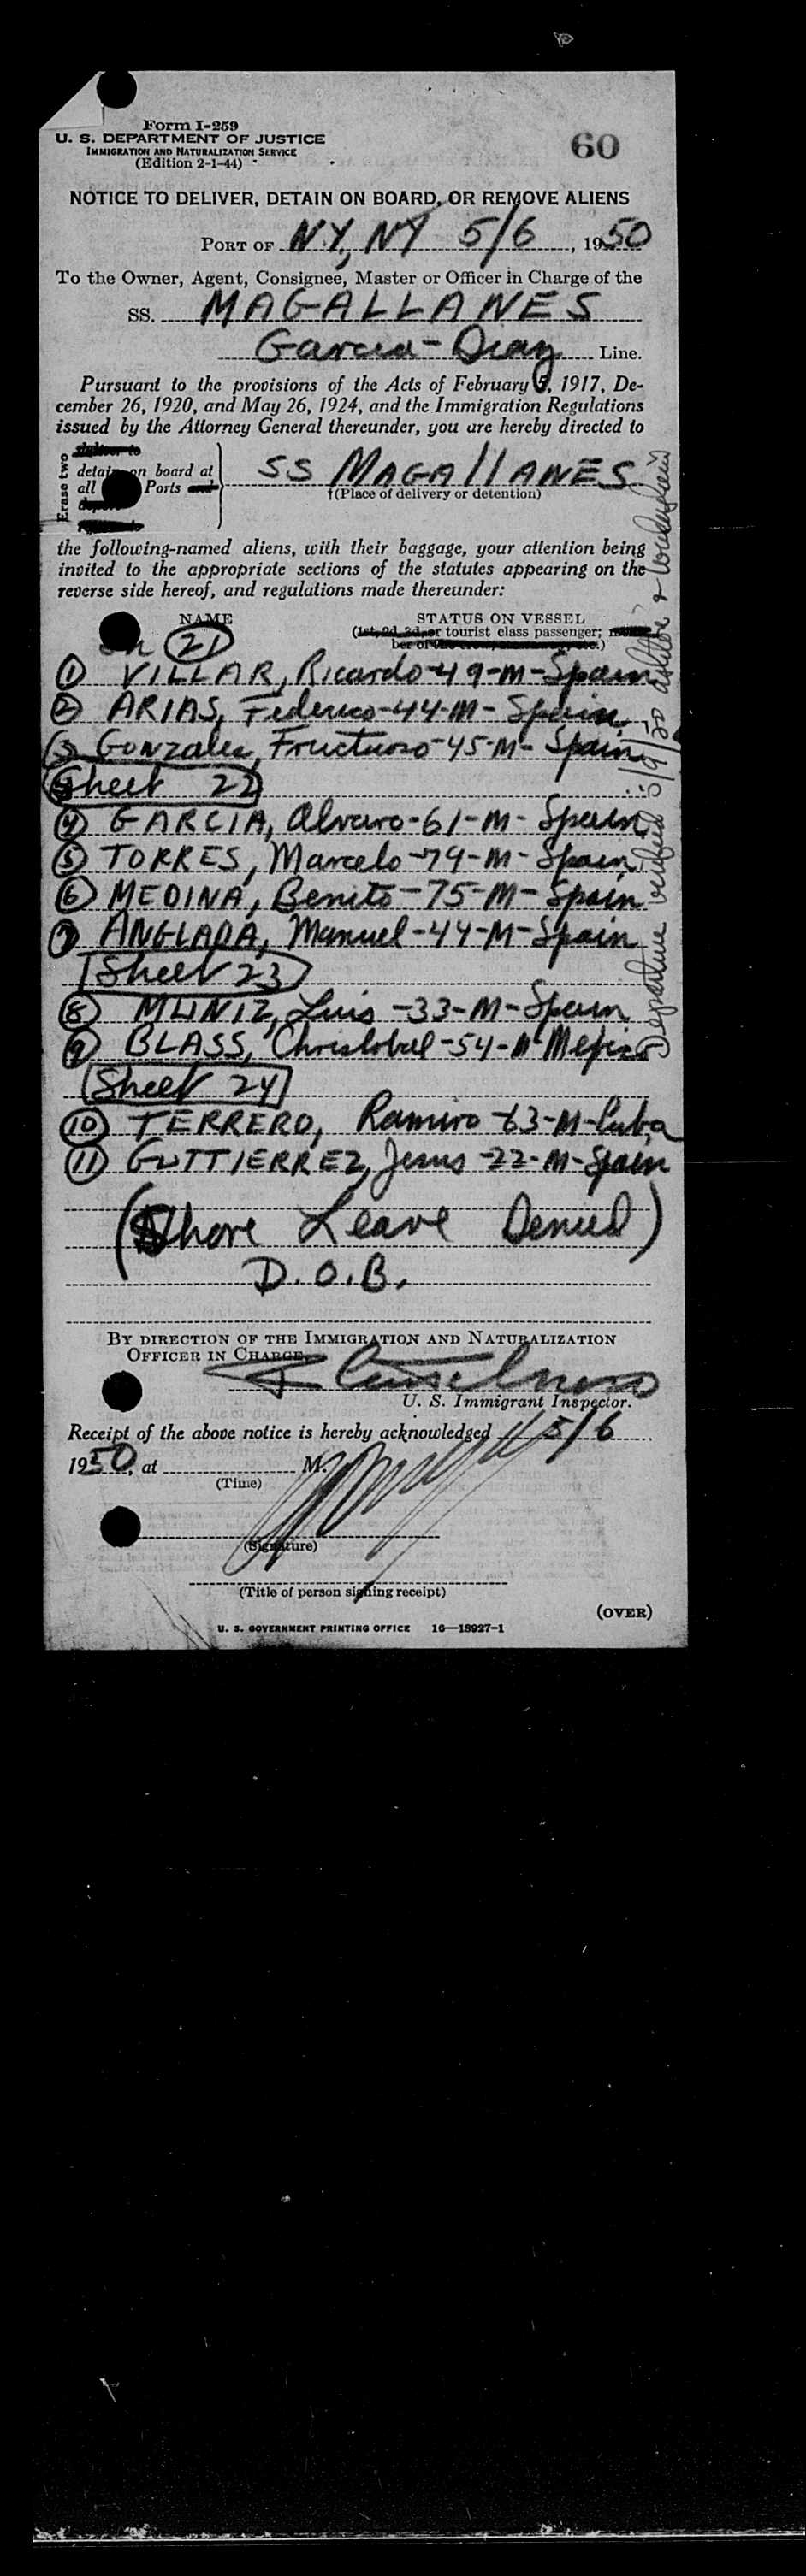 Form I-259
U. S. DEPARTMENT OF JUSTICE
IMMIGRATION AND NATURALIZATION SERVICE
(Edition 2-1-44)
60
NOTICE TO DELIVER, DETAIN ON BOARD, OR REMOVE ALIENS
PORT OF NY, NY 5/6, 1950
To the Owner, Agent, Consignee, Master or Officer in Charge of the
SS. MAGALLANES
Garcia-Diaz Line.
Pursuant to the provisions of the Acts of February 5, 1917, De-
cember 26, 1920, and May 26, 1924, and the Immigration Regulations
issued by the Attorney General thereunder, you are hereby directed to
Erase two
detain on board at
all Ports
SS MAGALLANES
†(Place of delivery or detention)
the following-named aliens, with their baggage, your attention being
invited to the appropriate sections of the statutes appearing on the
reverse side hereof, and regulations made thereunder:
NAME STATUS ON VESSEL
(1st, 2d, 3d, or tourist class passenger;
21
① VILLAR, Ricardo-49-M-Spain
② ARIAS, Federico-44-M-Spain
③ Gonzalez, Fructuoso-45-M-Spain
Sheet 22
④ GARCIA, Alvaro-61-M-Spain
⑤ TORRES, Marcelo-79-M-Spain
⑥ MEDINA, Benito-75-M-Spain
⑦ ANGLADA, Manuel-44-M-Spain
Sheet 23
⑧ MUNIZ, Luis-33-M-Spain
⑨ BLASS, Christobal-54-M
Sheet 24
⑩ TERRERO, Ramiro-63-M-Cuba
⑪ GUTTIERREZ, Jesus-22-M-Spain
(Shore Leave Denied)
D.O.B.
Departure verified 5/9/50
BY DIRECTION OF THE IMMIGRATION AND NATURALIZATION
OFFICER IN CHARGE
U. S. Immigrant Inspector.
Receipt of the above notice is hereby acknowledged 5/6
1950, at M.
(Time)
(Signature)
(Title of person signing receipt)
(OVER)
U. S. GOVERNMENT PRINTING OFFICE 16—18927-1